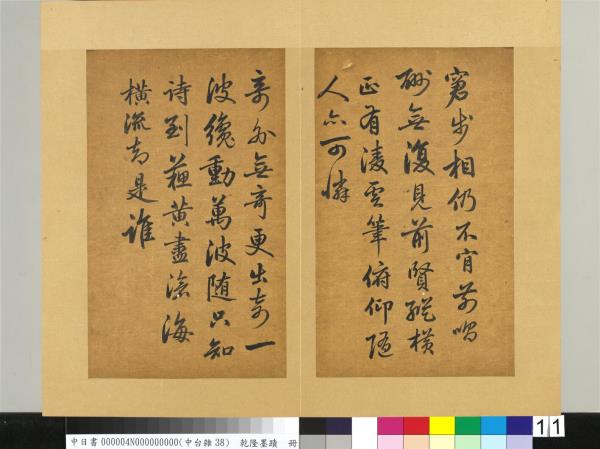 窘步相仍不肯前唱
酬無復見前賢縱橫
正有凌雲筆俯仰隨
人亦可憐
奇外無奇更出奇一
波纔動萬波随只知
詩到蘇黃盡滄海
橫流却是誰
中日書 000004N000000000(中台雜 38) 乾隆墨蹟 冊
11